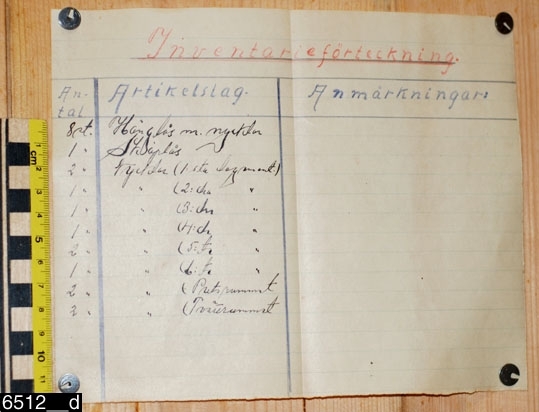 Inventarieförteckning.
An-
tal
Artikelslag.
Anmärkningar:
8 st. Hänglås m. nycklar
1 " Skåplås
2 " Nycklar (1:sta logement)
1 " " (2:dra "
1 " " (3:dje "
1 " " (4:de "
2 " " (5:te "
1 " " (6:te "
2 " " (Putsrummet
2 " " (Tvättrummet
cm
1
2
3
4
5
6
7
8
9
10
11
6512__d